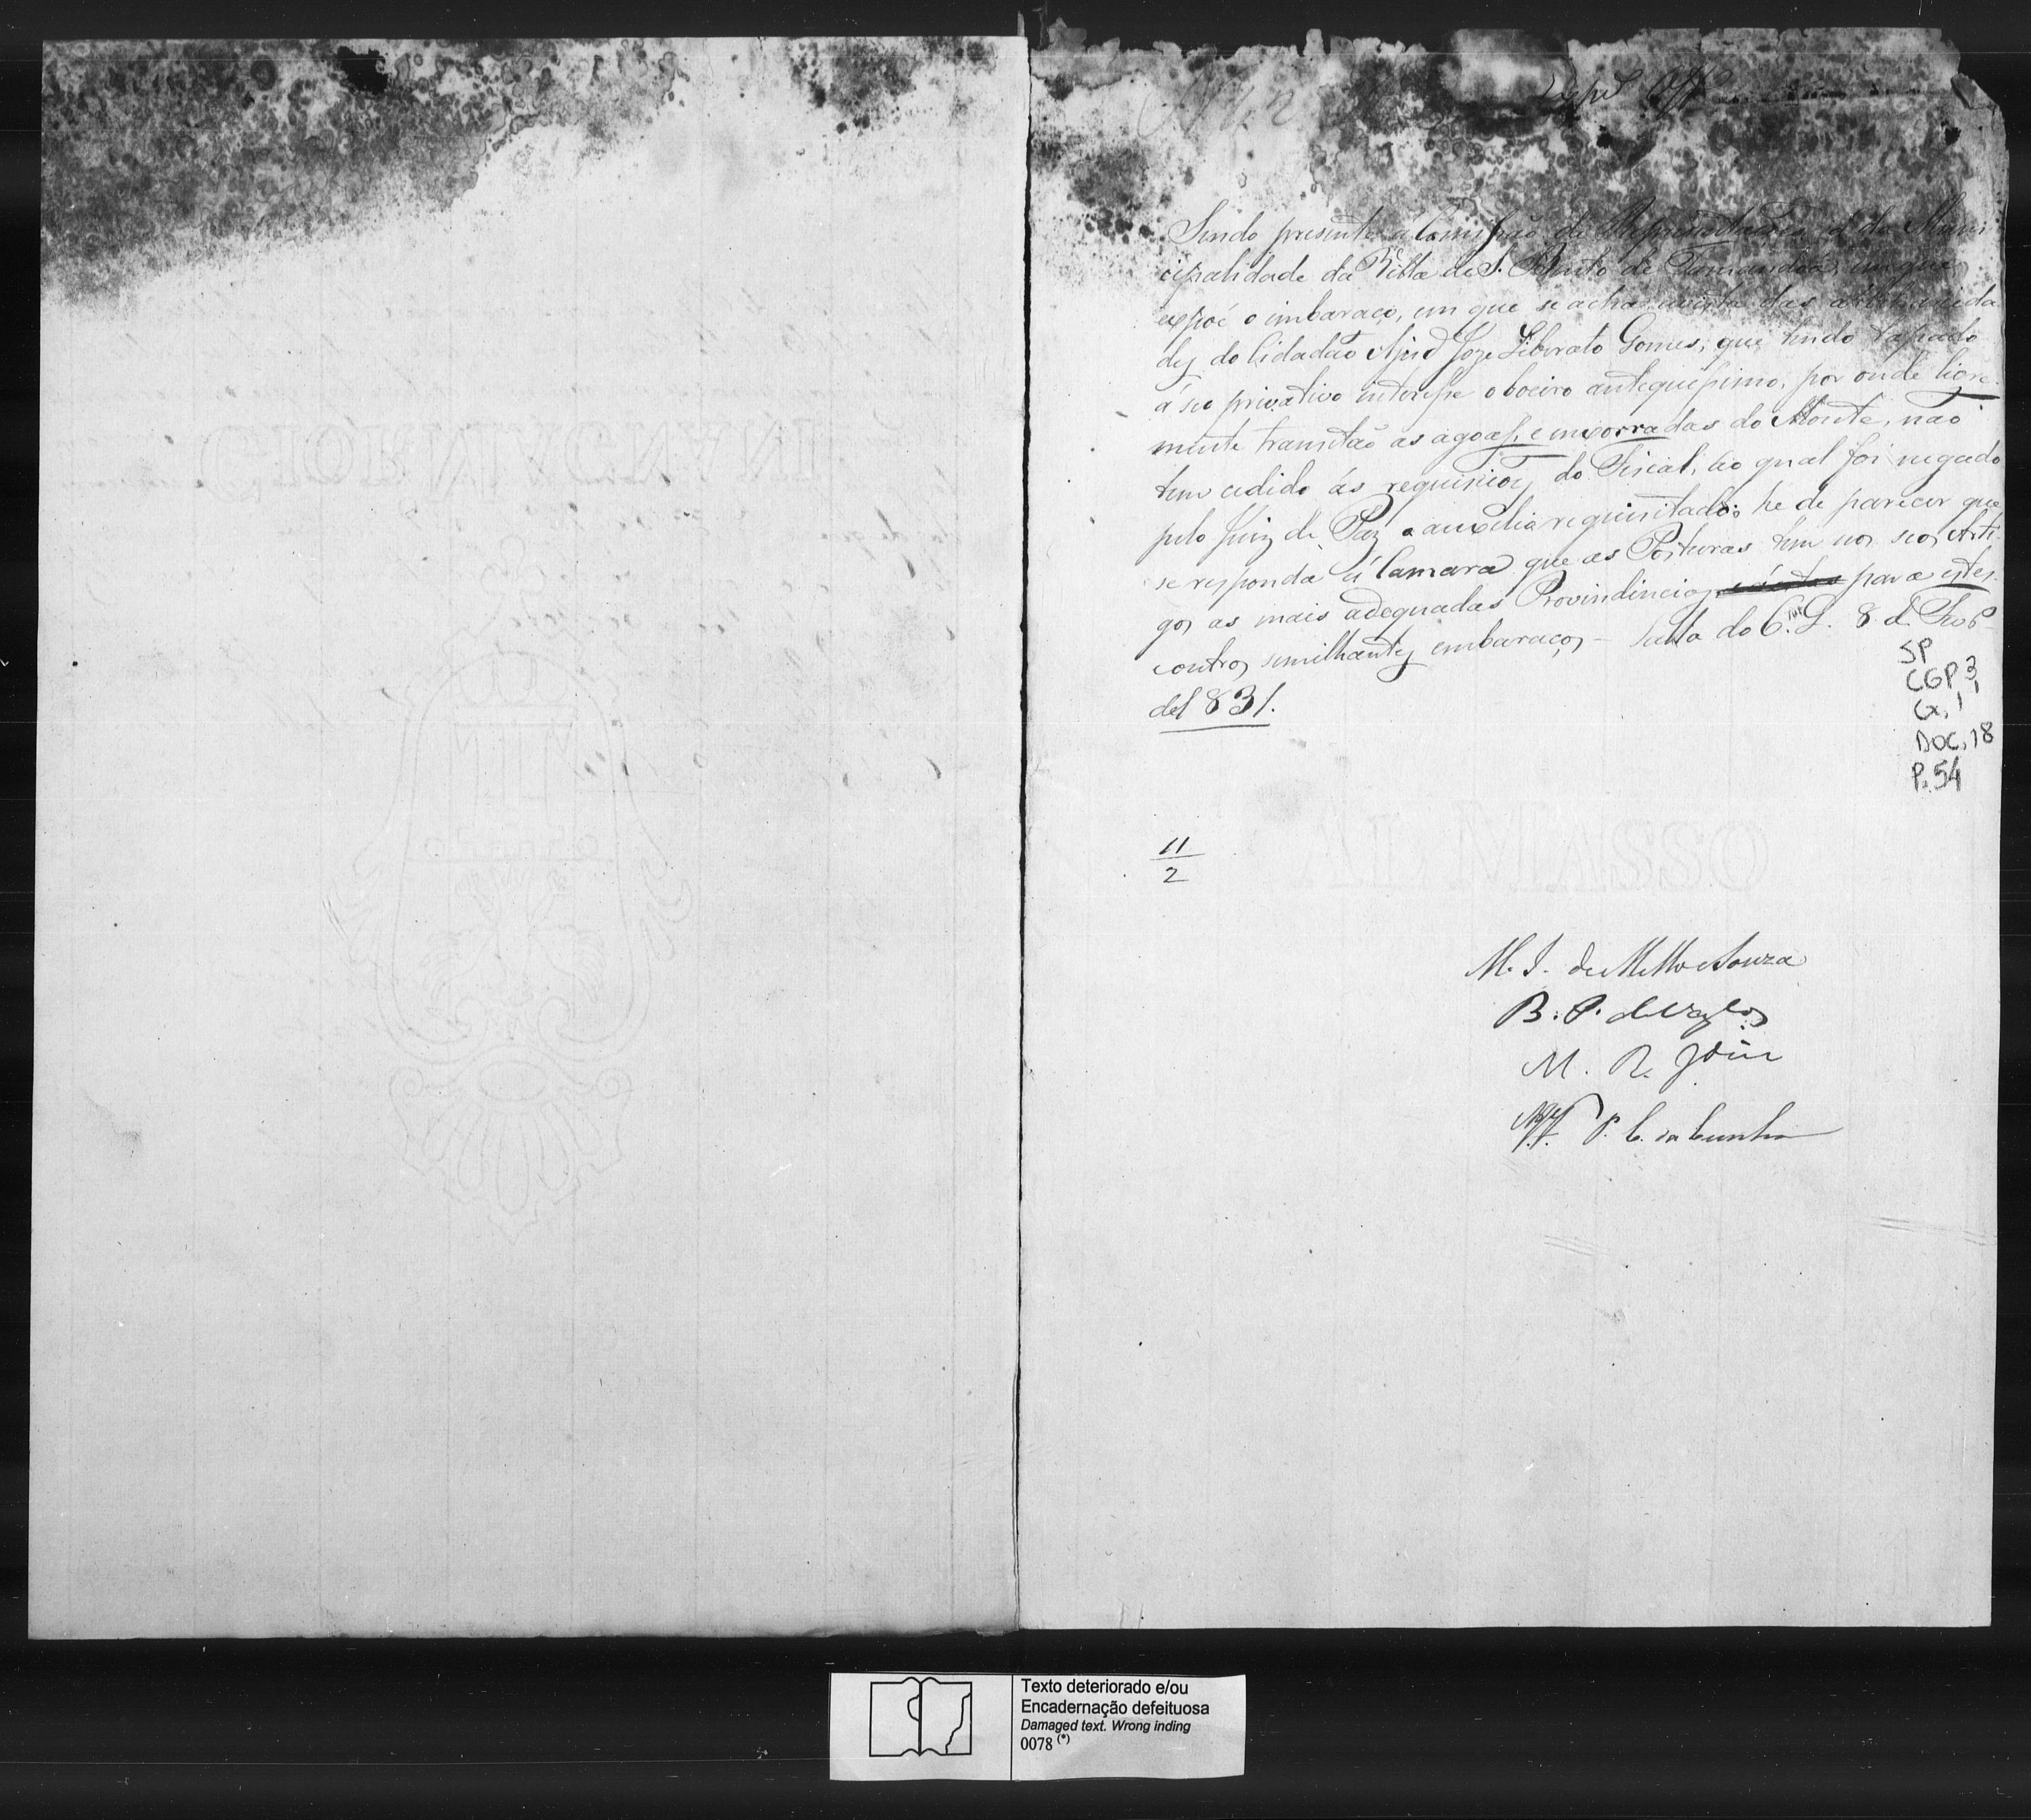 Sendo presente á Comissão de Representação a da Muni
cipalidade da Villa de S. Bento de Tamanduá, em que
expoe o embaraço, em que se acha avista das arbitrarieda
des do Cidadão Ajud Joze Liberato Gomes, que tendo tapado
á seo privativo interesse o boeiro antequissimo, por onde livre
mente transitão as agoas, e enxorradas do Monte, não
tem cedido ás requisições do Fiscal, ao qual foi negado
pelo Juiz de Paz o auxilio requisitado: he de parecer que
se responda á Camara que as Posturas tem nos seos Arti
gos as mais adequadas Providencias para estes
e outros semilhantes embaraços - Salla do C. G. 8 de Feo
de 1831.
SP
CGP 3
Cx, 1
DOC, 18
P. 54
11
2
M. I. de Mello e Souza
B. P. de Vas.los
M. R. Jdin
P. C. da Cunha
GIORN MAGNANI
AL MASSO
Texto deteriorado e/ou
Encadernação defeituosa
Damaged text. Wrong inding
0078 (*)